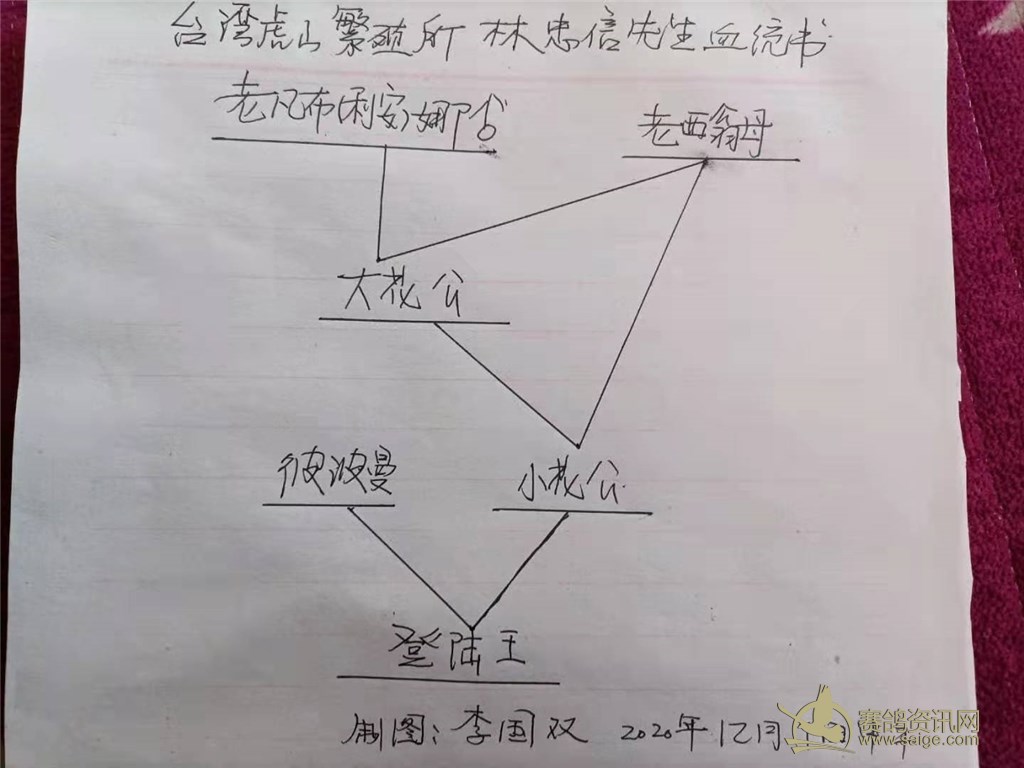 台湾虎山繁殖所 林忠信先生血统书
老凡布利安娜 老西翁母
大花公
彼波曼 小花公
登陆王
制图：李国双 2020年12月
赛鸽资讯网
www.saige.com